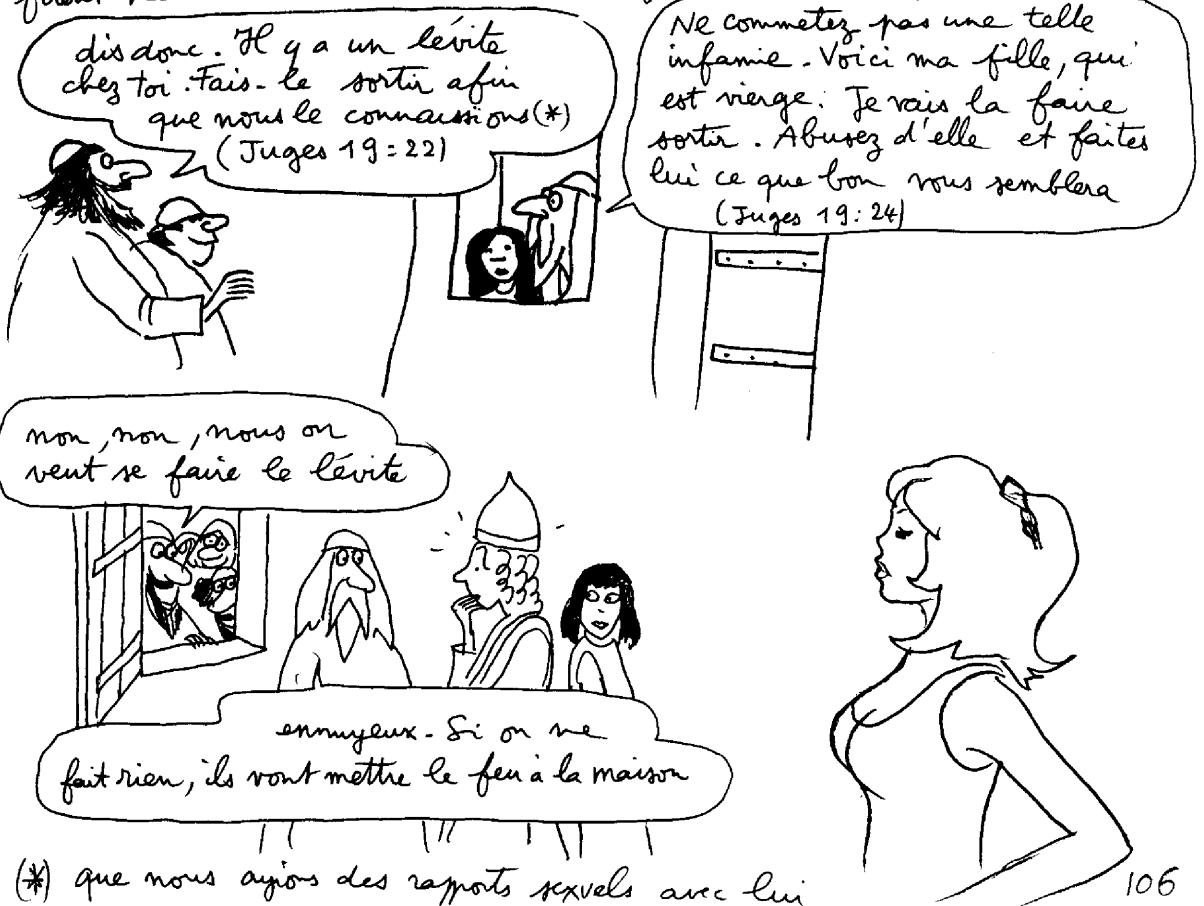 dis donc. Il y a un lévite
chez toi. Fais-le sortir afin
que nous le connaissions (*)
(Juges 19:22)
Ne commetez pas une telle
infamie. Voici ma fille, qui
est vierge. Je vais la faire
sortir. Abusez d'elle et faites
lui ce que bon vous semblera
(Juges 19:24)
non, non, nous on
veut se faire le lévite
ennuyeux. Si on ne
fait rien, ils vont mettre le feu à la maison
(*) que nous ayions des rapports sexuels avec lui
106